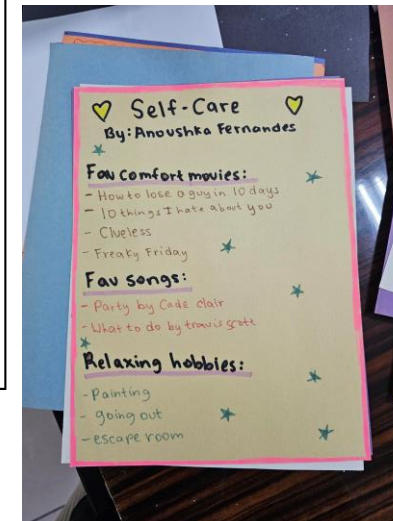 Self-Care
By: Anoushka Fernandes
Fav comfort movies:
- How to lose a guy in 10 days
- 10 things I hate about you
- Clueless
- Freaky Friday
Fav songs:
- Party by Cade clair
- What to do by travis scott
Relaxing hobbies:
- Painting
- going out
- escape room